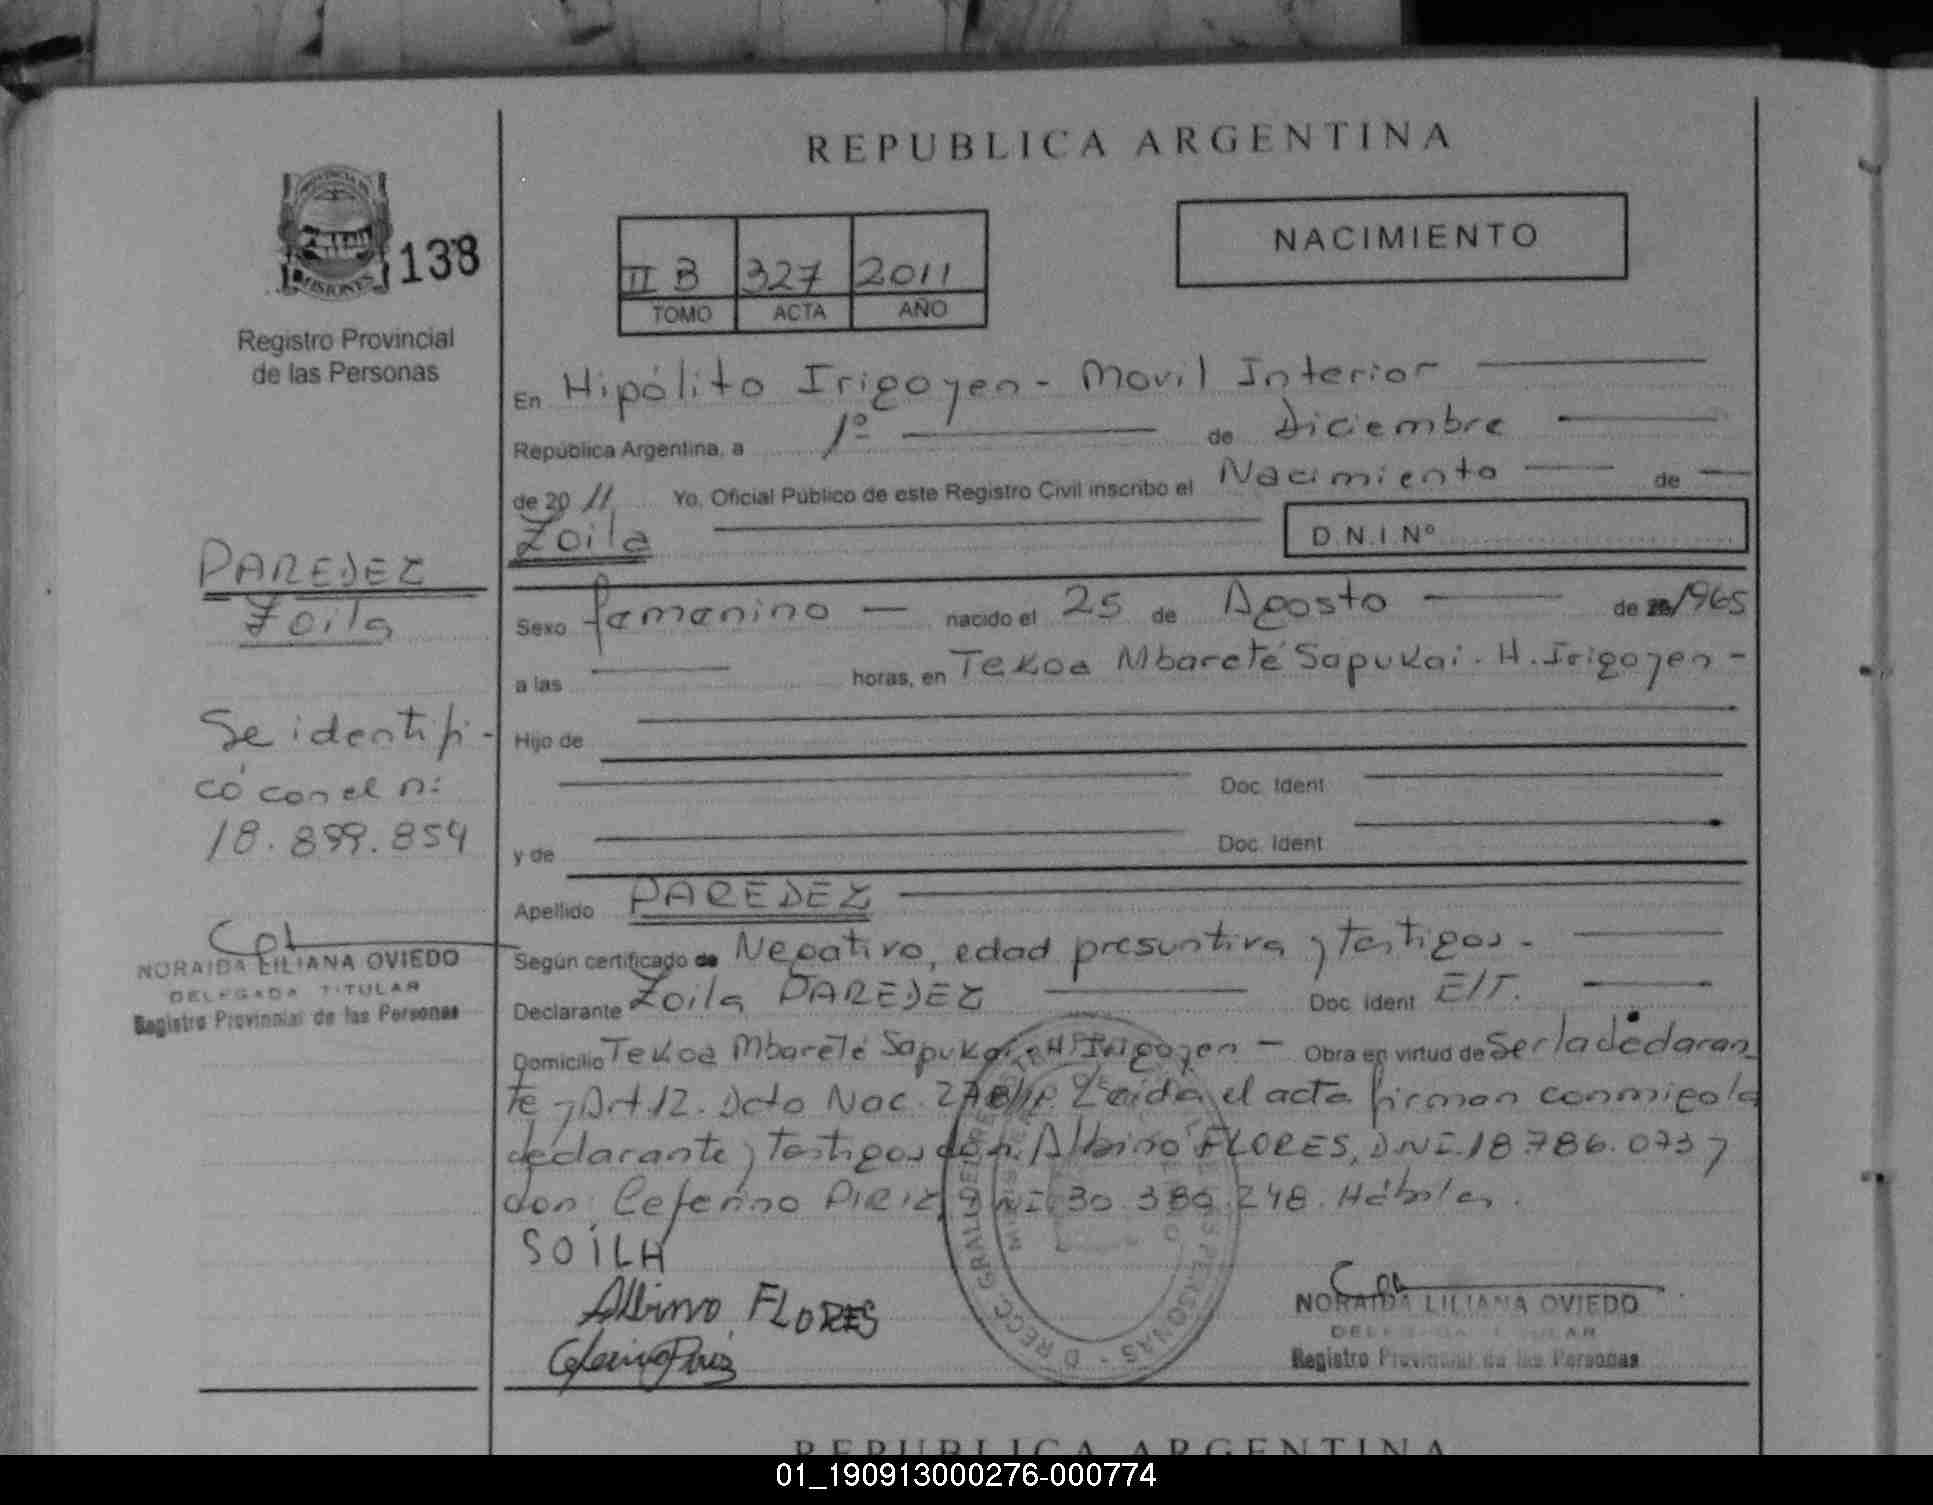 REPUBLICA ARGENTINA
PROVINCIA DE
MISIONES
138
Registro Provincial
de las Personas
II B 327 2011
TOMO ACTA AÑO
NACIMIENTO
En Hipólito Irigoyen - Movil Interior
República Argentina, a 1º de Diciembre
de 20 11 Yo, Oficial Público de este Registro Civil inscribo el Nacimiento de
Zoila
D.N.I. Nº
PAREDEZ
Zoila
Sexo femenino nacido el 25 de Agosto de 1965
a las horas, en Tekoa Mbareté Sapukai. H. Irigoyen -
Se identifi-
có con el n:
18.899.854
Hijo de
Doc. Ident
y de Doc. Ident
Apellido PAREDEZ
NORAIDA LILIANA OVIEDO
DELEGADA TITULAR
Registro Provincial de las Personas
Según certificado de Negativo, edad presuntiva y testigos -
Declarante Zoila PAREDEZ Doc. Ident E/T.
Domicilio Tekoa Mbareté Sapukai H. Irigoyen - Obra en virtud de Ser la declaran
te y Art. 12. Dcto Nac. Leida el acta firman conmigo la
declarante y testigos don: Albino FLORES, DNI. 18.786.073 y
don: Ceferino PIRIZ, DNI. 30.380.248. Hábiles.
SOILA
Albino FLORES
NORAIDA LILIANA OVIEDO
DELEGADA TITULAR
Registro Provincial de las Personas
REPUBLICA ARGENTINA
01_190913000276-000774